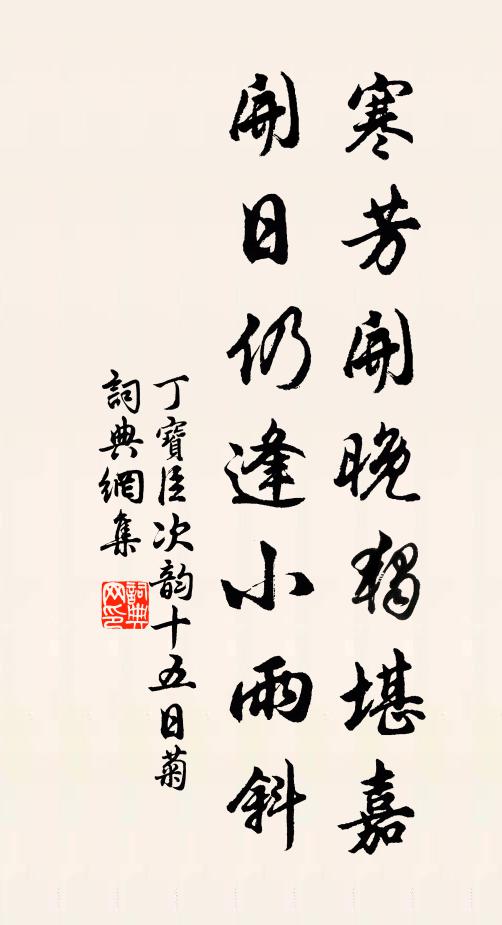 寒芳開晚獨堪嘉
開日仍逢小雨斜
丁寶臣次韵十五日菊
詞典網集
詞典网印